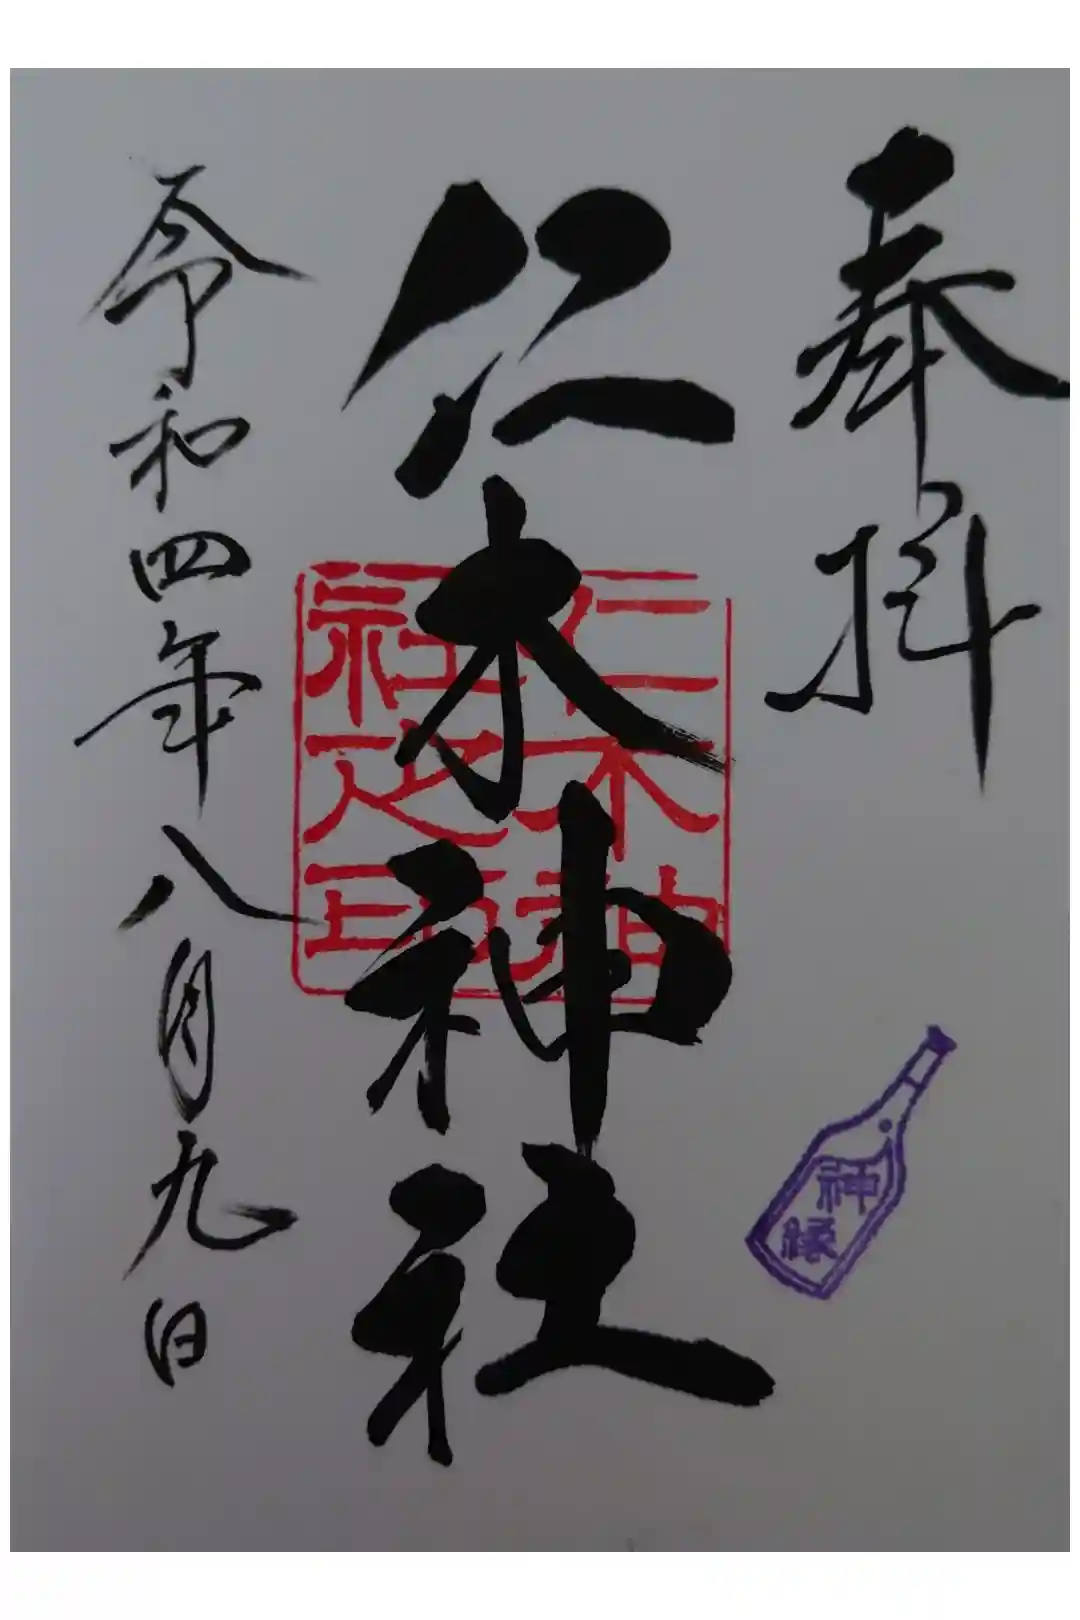 奉拝
仁木神社
仁木神
社之印
令和四年八月九日
神
縁